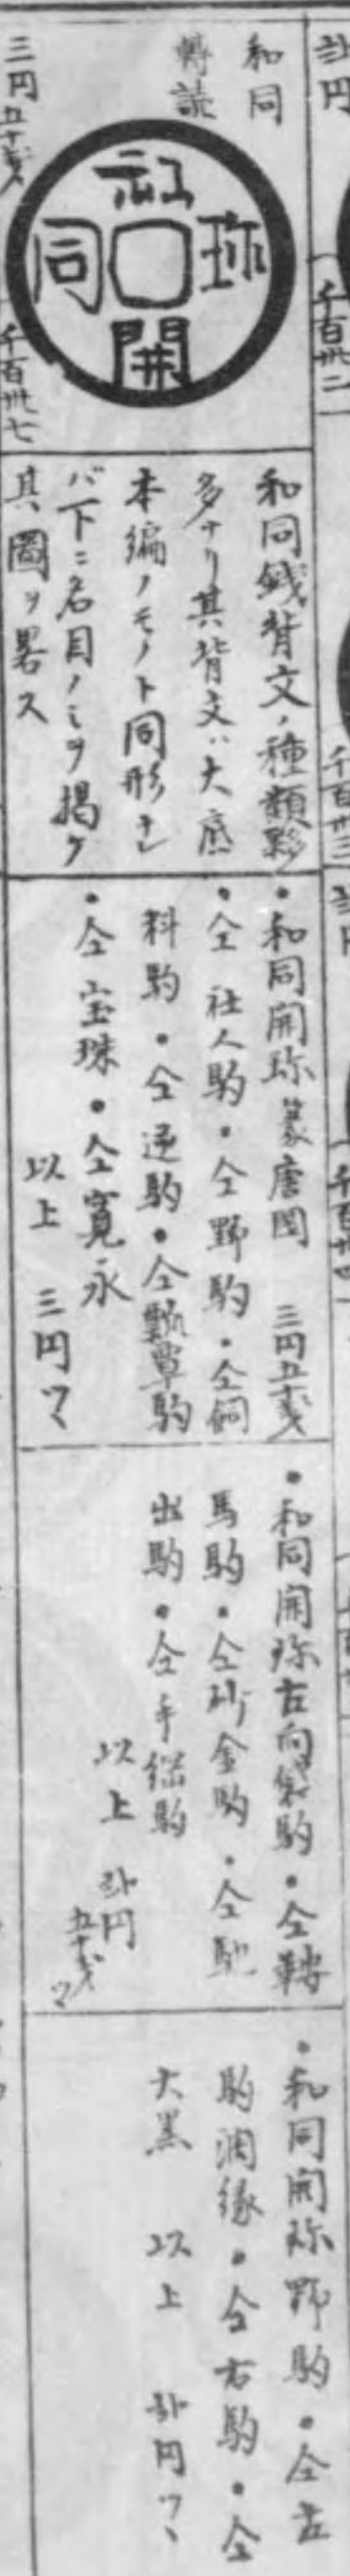 弍円
千百卅二
千百卅三
和同
轉読
和
同
開
珎
三円五十戋
千百卅七
和同銭背文ノ種類夥
多ナリ其背文ハ大底
本編ノモノト同形ナレ
バ下ニ名目ノミヲ掲ケ
其圖ヲ畧ス
・和同開珎篆唐國 三円五十戋
・仝 社人駒・仝野駒・仝飼
料駒・仝逆駒・仝瓢箪駒
・仝宝珠・仝寛永
以上 三円ツヽ
・和同開珎古向駒・仝鞍
馬駒・仝砂金駒・仝馳
出駒・仝手綱駒
以上 弍円五十戋ツヽ
・和同開珎野駒・仝古
駒濶縁・仝右駒・仝
大黒 以上 弍円ツヽ